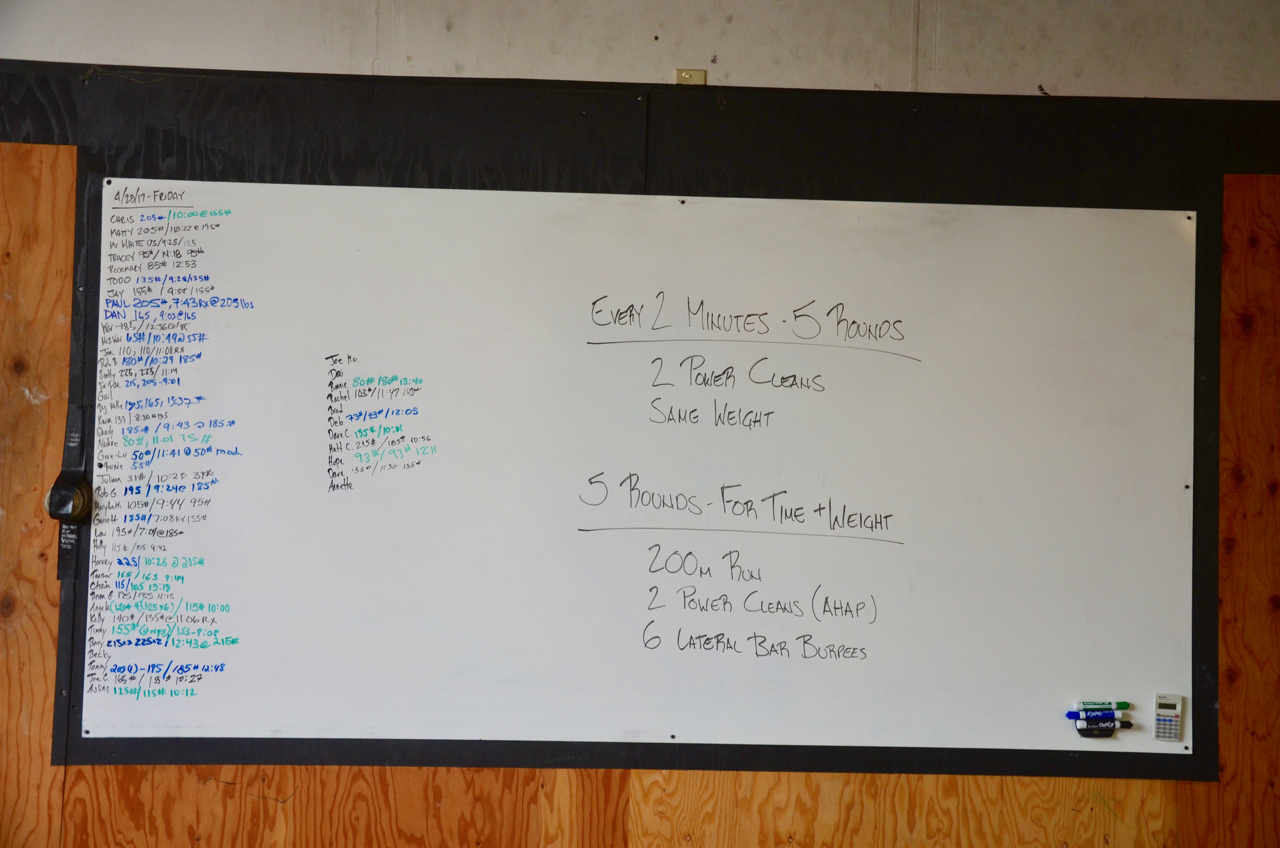 4/28/17 - FRIDAY
CHRIS 205# / 10:00 @ 155#
MATTY 205# / 10:22 @ 195#
Mr WHITE 175/925/155
TRACEY 95# / 14:18 95#
ROSEMARY 85# 12:53
TODD 135# / 9:28/135#
JAY 155# / 9:58 / 155#
PAUL 205#, 7:43 RX @ 205 lbs
DAN 165, 9:03@165
65# / 10:49 @ 55#
110, 110/11:08 RX
Rob B 180# / 10:29 185#
Scotty 225, 225 / 11:14
215, 205 - 9:01
Gail
Big Mike 195, 165, 13:37
135 | 8:30 @ 135
185# / 9:43 @ 185#
Nadine 80#, 11:01 75#
50# / 11:41 @ 50# mod
55#
31# / 10:20
Rob G 195 / 9:24 @ 185#
Marybeth 105# / 9:44 95#
Garrett 185# / 7:08 RX 155#
Lou 195# / 7:09 @ 185#
Holly 115# / 105 9:42
Harvey 225 / 10:26 @ 205#
Tanner 165 / 165 9:44
115/105 13:13
Brian G 135 / 135 11:15
/ 115# 10:00
Kelly 140# / 135# @ 11:06 RX
Timmy 155# / 155 - 8:08
215x3 225x2 / 12:43 @ 215#
Becky
Tommy 205(1) - 195 / 185# 12:48
Joe C 165# / 155# 10:27
Ashley 125# / 115# 10:12
Joe Mc.
Dai
Ronnie 80# / 80# 13:40
Rachel 103# / 11:47 103#
Brad
Deb 73# / 73# / 12:05
Dave C. 155# / 10:01
Matt C. 215# / 185# 10:56
Hope 93# / 93# 12:11
Dave 155# / 11:30 135#
Annette
EVERY 2 MINUTES - 5 ROUNDS
2 POWER CLEANS
SAME WEIGHT
5 ROUNDS - FOR TIME + WEIGHT
200m RUN
2 POWER CLEANS (AHAP)
6 LATERAL BAR BURPEES
EXPO
EXPO